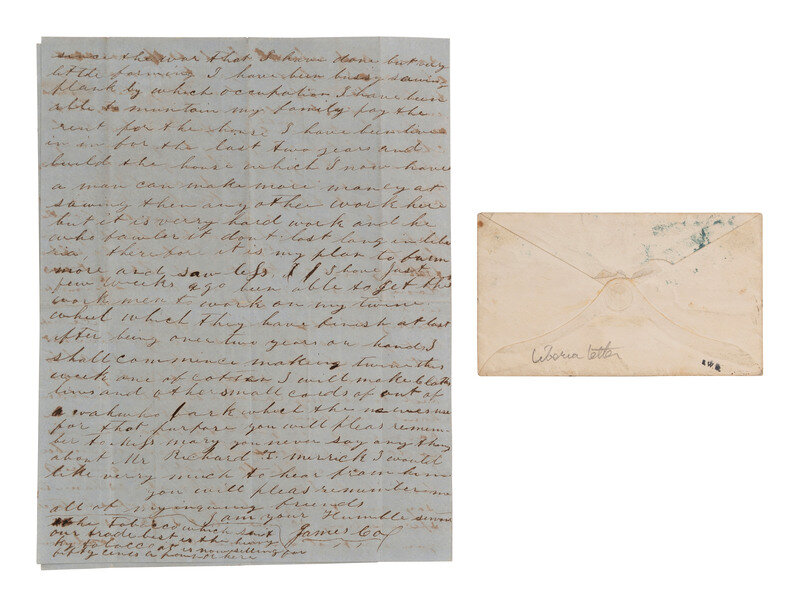 since the war that I have done but very
little farming I have been busy sawing
plank by which occupation I have been
able to maintain my family pay the
rent for the house I have been live
in in for the last two years and
build the house which I now have
a man can make more money at
sawing then any other work her
but it is verry hard work and he
who fowler it dont last long in libe
ria, therefore it is my plan to farm
more and saw less I have just
few weeks ago been able to get the
workment work on my twine
wheel which they have finish at last
after being over two years on hands I
shall commence making twine this
week one of cotton I will make
lines and other small cords of out of
a bark which the natives use
for that purpose you will pleas remem
ber to miss mary you never say any thing
about Mr Richard T. Merrick I would
like verry much to hear from him
you will pleas remember me
all of my inquing friends
I am your Humble servant
James Cox
the tobacco which suit
our trade best is the
ky tobacco as is now selling for
fifty cents a pound here
Liberia letter